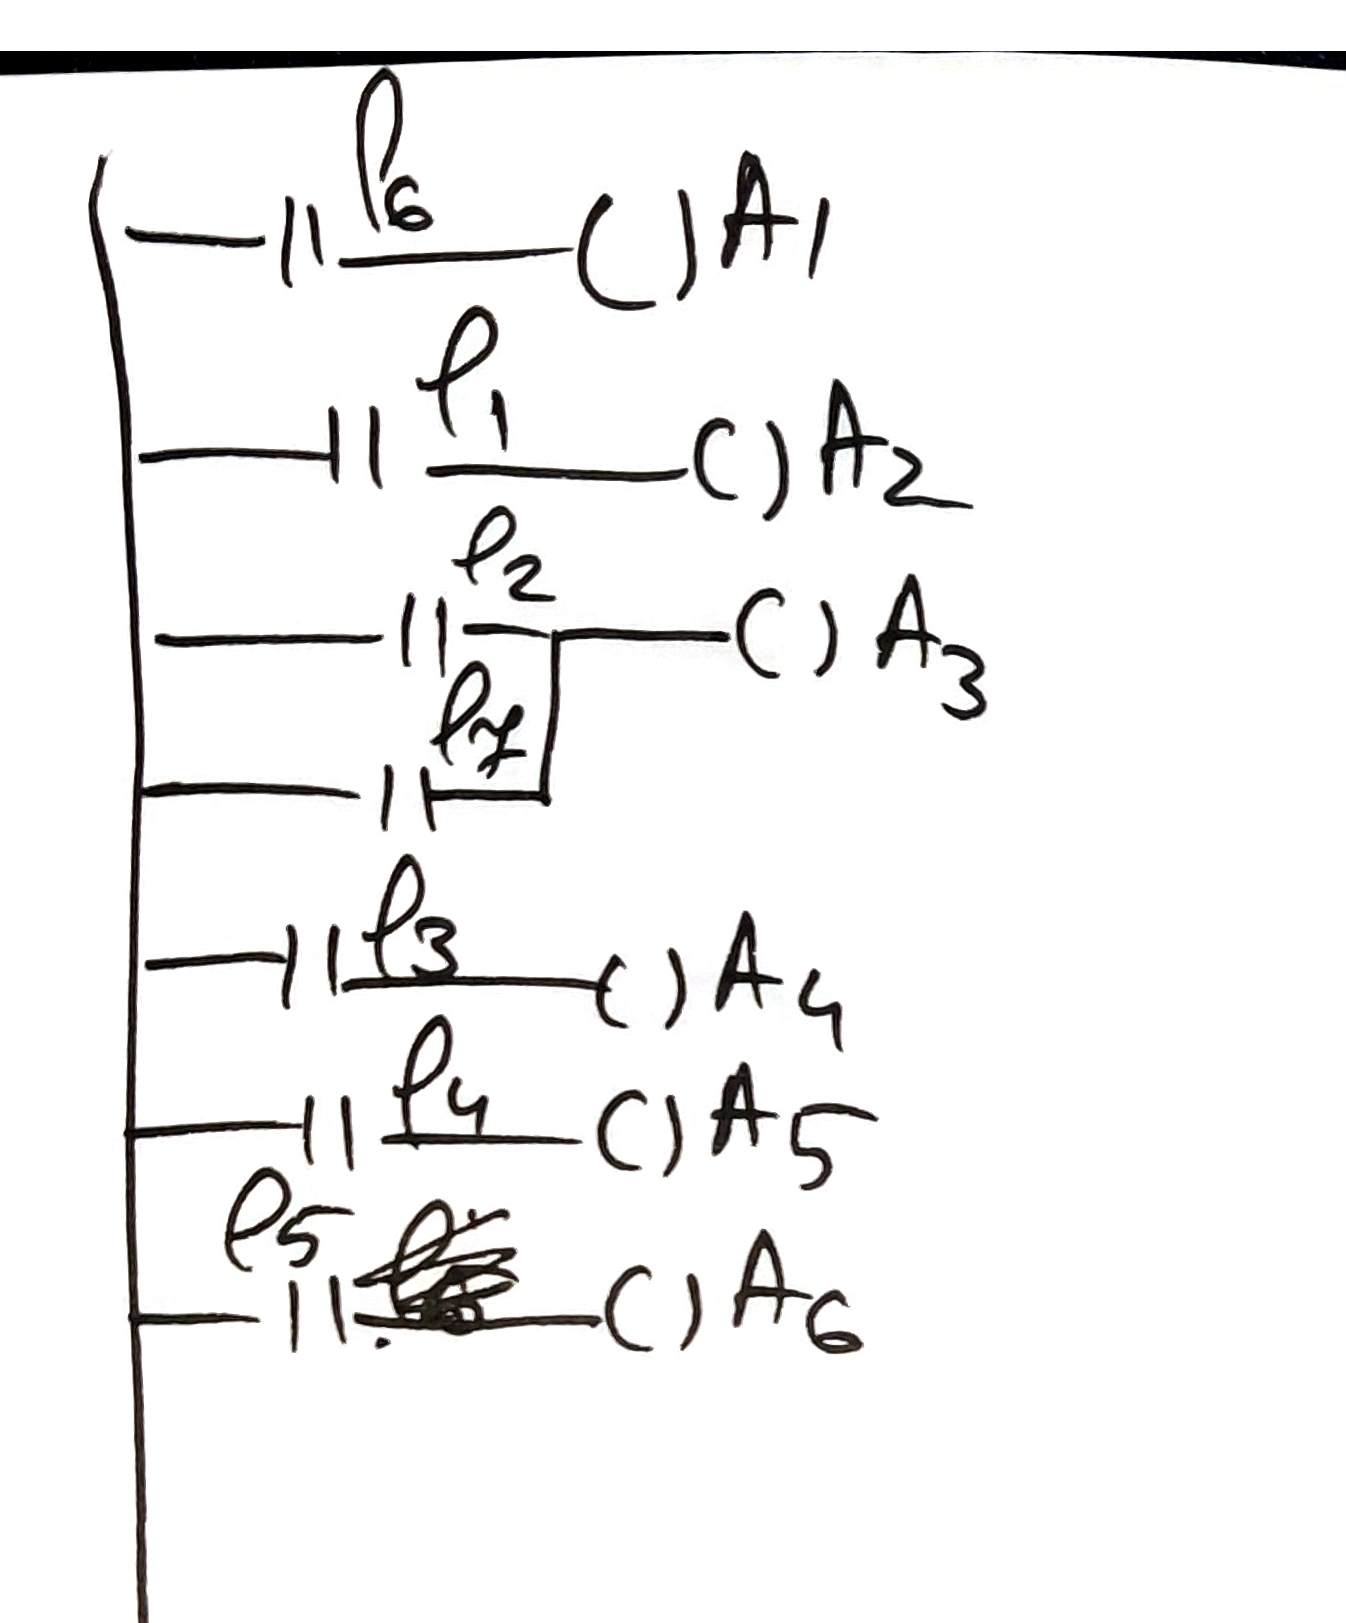 l6 ()A1
l1 ()A2
l2 ()A3
l7
l3 ()A4
l4 ()A5
l5 ()A6